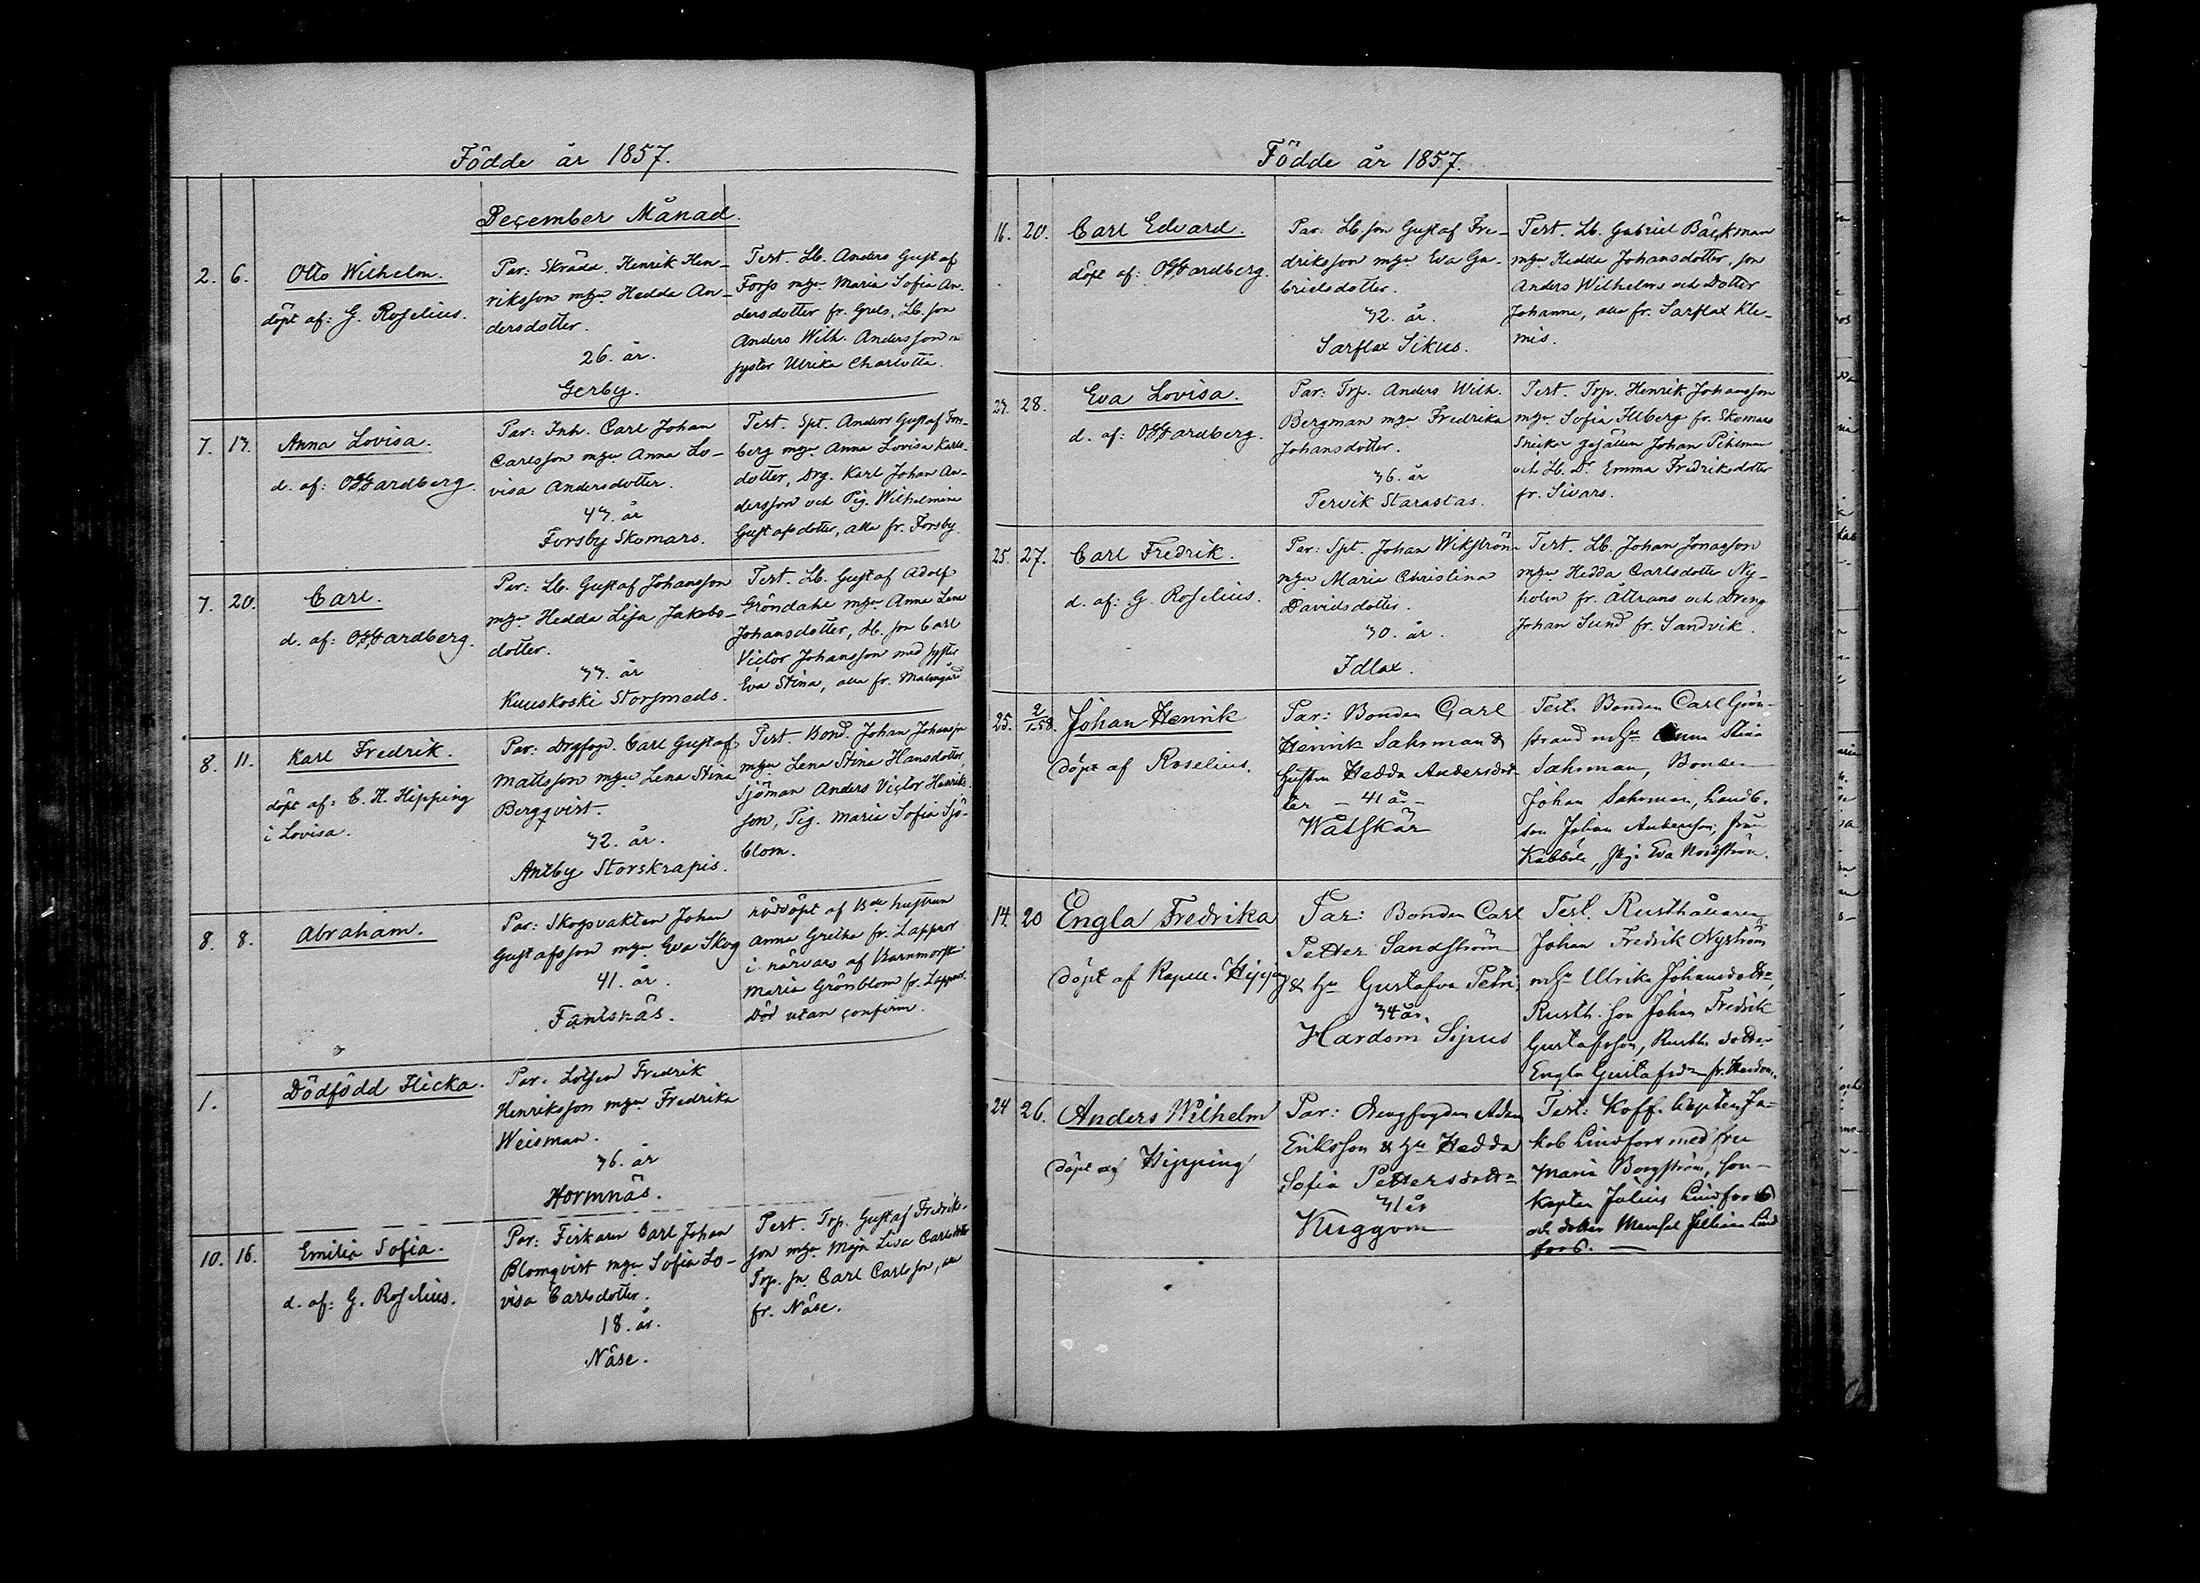 Födde år 1857.
December Månad.
2. 6. Otto Wilhelm.
döpt af: G. Roselius.
Par: Skrädd. Henrik Hen-
riksson mhu Hedda An-
dersdotter.
26. år.
Gerby.
Test. Lb. Anders Gustaf
Forss mhu Maria Sofia An-
dersdotter fr. Grels, Lb. son
Anders Wilh. Andersson m
syster Ulrika Charlotta.
7. 13. Anna Lovisa.
d. af: O. Hardberg.
Par: Inh. Carl Johan
Carlsson mhu Anna Lo-
visa Andersdotter.
43. år
Forsby Skomars.
Test. Spt. Anders Gustaf Fors-
berg mhu Anna Lovisa Karls-
dotter, Drg. Karl Johan An-
dersson och Pig. Wilhelmina
Gustafsdotter, alla fr. Forsby.
7. 20. Carl.
d. af: O. Hardberg.
Par: Lb. Gustaf Johansson
mhu Hedda Lisa Jakobs-
dotter.
33. år
Kuuskoski Storsmeds.
Test. Lb. Gustaf Adolf
Gröndahl mhu Anna Lena
Johansdotter, Lb. son Carl
Victor Johansson med syster
Eva Stina, alla fr. Malmgård
8. 11. Karl Fredrik.
döpt af: C. H. Hipping
i Lovisa.
Par: Drgfogd. Carl Gustaf
Mattsson mhu Lena Stina
Bergqvist.
32. år.
Antby Storskrapis.
Test. Bond. Johan Johansson
mhu Lena Stina Hansdotter,
Sjöman Anders Victor Henriks-
son, Pig. Maria Sofia Sjö-
blom.
8. 8. Abraham.
Par: Skogsvakten Johan
Gustafsson mhu Eva Skog
41. år.
Fantsnäs.
nöddöpt af Bde hustrun
Anna Gretha fr. Lappor
i närvaro af Barnmorsk
Maria Grönblom fr. Lappor.
Död utan confirm.
1. Dödfödd Flicka.
Par: Lotsen Fredrik
Henriksson mhu Fredrika
Weisman.
36. år
Hormnäs.
10. 16. Emilia Sofia.
d. af: G. Roselius.
Par: Fiskaren Carl Johan
Blomqvist mhu Sofia Lo-
visa Carlsdotter.
18. år.
Näse.
Test. Trp. Gustaf Fredriks-
son mhu Maja Lisa Carlsdotter
Trp. sn. Carl Carlsson, alla
fr. Näse.
Födde år 1857.
16. 20. Carl Edvard.
döpt af: O. Hardberg.
Par: Lb. son Gustaf Fre-
driksson mhu Eva Ga-
brielsdotter.
32. år.
Sarflax Sikus.
Test. Lb. Gabriel Bäckman
mhu Hedda Johansdotter, son
Anders Wilhelms och Dotter
Johanna, alla fr. Sarflax Kle-
mis.
23. 28. Eva Lovisa.
d. af: O. Hardberg.
Par: Trp. Anders Wilh.
Bergman mhu Fredrika
Johansdotter.
36. år
Pervik Starastas.
Test. Trp. Henrik Johansson
mhu Sofia Alberg fr. Skomars
Snickar gesällen Johan Pihlman
och Lb. Dr Emma Fredriksdotter
fr. Sivars.
25. 27. Carl Fredrik.
d. af: G. Roselius.
Par: Spt. Johan Wikström
mhu Maria Christina
Davidsdotter.
30. år.
Idlax.
Test. Lb. Johan Jonasson
mhu Hedda Carlsdotter Ny-
holm fr. Allrans och Dreng
Johan Sund fr. Sandvik.
25. 2/1-58. Johan Henrik
Döpt af Roselius.
Par: Bonden Carl
Henrik Sahrman &
Hustru Hedda Andersdot-
ter – 41 år –
Wåtskär
Test. Bonden Carl Grön-
strand mhu Anna Stina
Sahrman, Bonden
Johan Sahrman, Landb.
son Johan Andersson, från
Kabböle, Pig. Eva Nordström.
14. 20 Engla Fredrika
Döpt af Kapell. Hipping
Par: Bonden Carl
Petter Sandström
& hu Gustafva Petri
34 år.
Hardom Sipus
Test. Rusthållaren
Johan Fredrik Nyström
mhu Ulrika Johansdotter,
Rusth. son Johan Fredrik
Gustafsson, Rusth. dotter
Engla Gustafsdr fr. Hardom.
24 26. Anders Wilhelm
Döpt af Hipping
Par: Drengfogden Adam
Eriksson & hu Hedda
Sofia Pettersdotter
31 år
Kuggom
Test: Koff. Capten Ja-
kob Lindfors med fru
Maria Borgström, son
Kapten Julius Lindfors
och dotter Mamsel Lind
fors. —